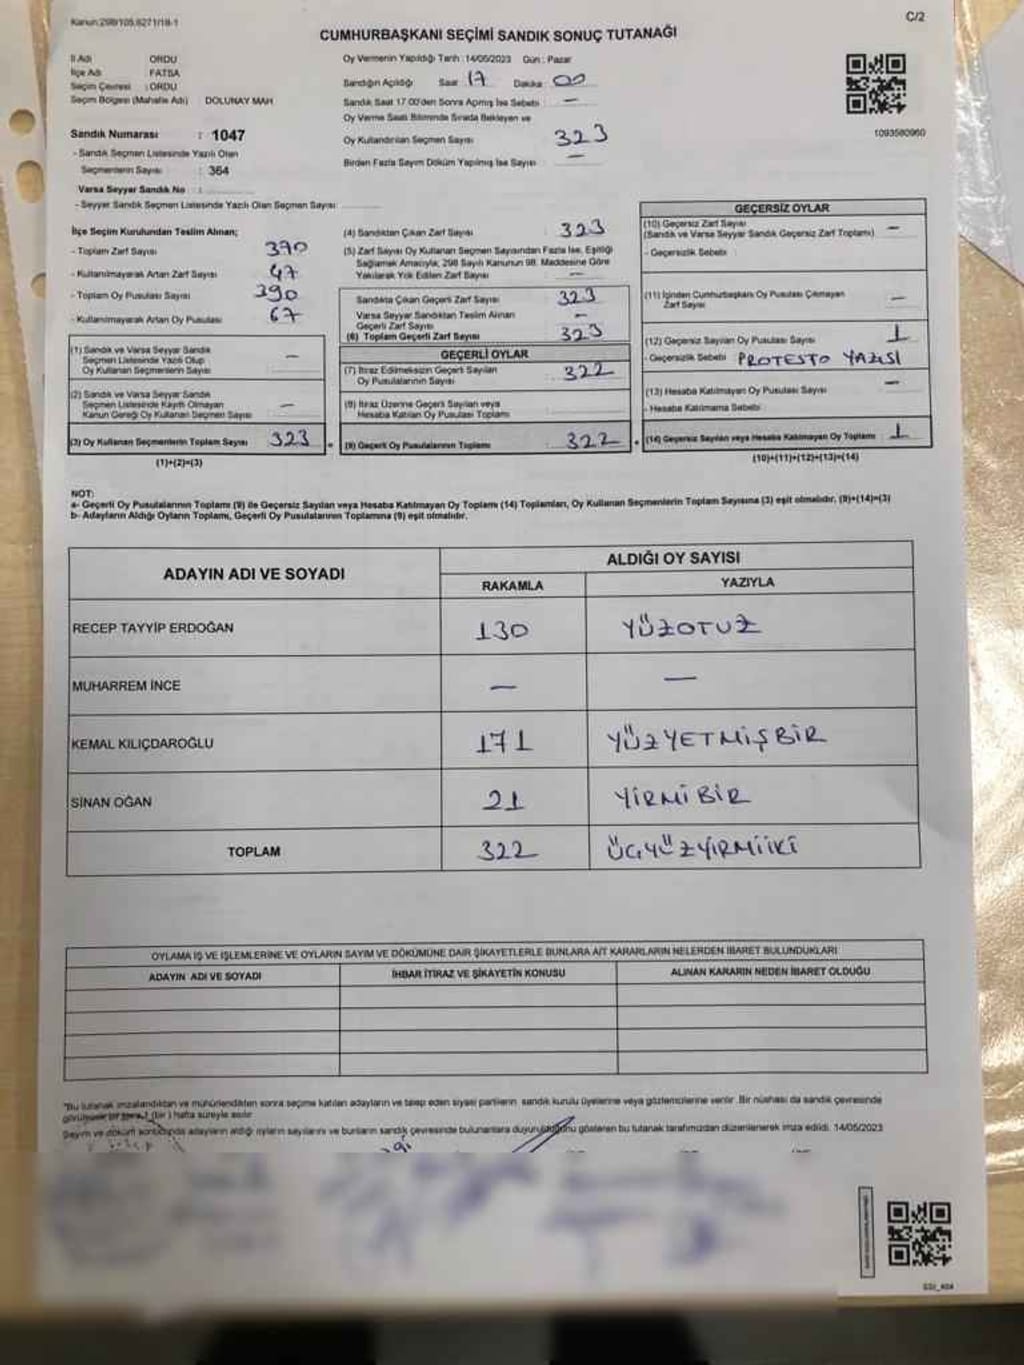 Kanun:298/105,6271/18-1
C/2
CUMHURBAŞKANI SEÇİMİ SANDIK SONUÇ TUTANAĞI
İl Adı ORDU
İlçe Adı FATSA
Seçim Çevresi : ORDU
Seçim Bölgesi (Mahalle Adı) DOLUNAY MAH
Sandık Numarası : 1047
- Sandık Seçmen Listesinde Yazılı Olan
Seçmenlerin Sayısı : 364
Varsa Seyyar Sandık No :
- Seyyar Sandık Seçmen Listesinde Yazılı Olan Seçmen Sayısı
Oy Vermenin Yapıldığı Tarih : 14/05/2023 Gün : Pazar
Sandığın Açıldığı Saat 17 Dakika 00
Sandık Saat 17.00'den Sonra Açmış İse Sebebi —
Oy Verme Saati Bitiminde Sırada Bekleyen ve
Oy Kullandırılan Seçmen Sayısı 323
Birden Fazla Sayım Döküm Yapılmış İse Sayısı —
1093580960
İlçe Seçim Kurulundan Teslim Alınan;
- Toplam Zarf Sayısı 370
- Kullanılmayarak Artan Zarf Sayısı 47
- Toplam Oy Pusulası Sayısı 390
- Kullanılmayarak Artan Oy Pusulası 67
(1) Sandık ve Varsa Seyyar Sandık
Seçmen Listesinde Yazılı Olup
Oy Kullanan Seçmenlerin Sayısı —
(2) Sandık ve Varsa Seyyar Sandık
Seçmen Listesinde Kayıtlı Olmayan
Kanun Gereği Oy Kullanan Seçmen Sayısı —
(3) Oy Kullanan Seçmenlerin Toplam Sayısı 323
(1)+(2)=(3)
(4) Sandıktan Çıkan Zarf Sayısı 323
(5) Zarf Sayısı Oy Kullanan Seçmen Sayısından Fazla İse, Eşitliği
Sağlamak Amacıyla, 298 Sayılı Kanunun 98. Maddesine Göre
Yakılarak Yok Edilen Zarf Sayısı —
Sandıkta Çıkan Geçerli Zarf Sayısı 323
Varsa Seyyar Sandıktan Teslim Alınan
Geçerli Zarf Sayısı —
(6) Toplam Geçerli Zarf Sayısı 323
GEÇERLİ OYLAR
(7) İtiraz Edilmeksizin Geçerli Sayılan
Oy Pusulalarının Sayısı 322
(8) İtiraz Üzerine Geçerli Sayılan veya
Hesaba Katılan Oy Pusulası Toplamı
(9) Geçerli Oy Pusulalarının Toplamı 322
GEÇERSİZ OYLAR
(10) Geçersiz Zarf Sayısı
(Sandık ve Varsa Seyyar Sandık Geçersiz Zarf Toplamı) —
- Geçersizlik Sebebi
(11) İçinden Cumhurbaşkanı Oy Pusulası Çıkmayan
Zarf Sayısı —
(12) Geçersiz Sayılan Oy Pusulası Sayısı 1
- Geçersizlik Sebebi PROTESTO YAZISI
(13) Hesaba Katılmayan Oy Pusulası Sayısı —
- Hesaba Katılmama Sebebi
(14) Geçersiz Sayılan veya Hesaba Katılmayan Oy Toplamı 1
(10)+(11)+(12)+(13)=(14)
NOT:
a- Geçerli Oy Pusulalarının Toplamı (9) ile Geçersiz Sayılan veya Hesaba Katılmayan Oy Toplamı (14) Toplamları, Oy Kullanan Seçmenlerin Toplam Sayısına (3) eşit olmalıdır. (9)+(14)=(3)
b- Adayların Aldığı Oyların Toplamı, Geçerli Oy Pusulalarının Toplamına (9) eşit olmalıdır.
ADAYIN ADI VE SOYADI
ALDIĞI OY SAYISI
RAKAMLA YAZIYLA
RECEP TAYYİP ERDOĞAN 130 YÜZOTUZ
MUHARREM İNCE — —
KEMAL KILIÇDAROĞLU 171 YÜZYETMİŞBİR
SİNAN OĞAN 21 YİRMİBİR
TOPLAM 322 ÜÇYÜZYİRMİİKİ
OYLAMA İŞ VE İŞLEMLERİNE VE OYLARIN SAYIM VE DÖKÜMÜNE DAİR ŞİKAYETLERLE BUNLARA AİT KARARLARIN NELERDEN İBARET BULUNDUKLARI
ADAYIN ADI VE SOYADI İHBAR İTİRAZ VE ŞİKAYETİN KONUSU ALINAN KARARIN NEDEN İBARET OLDUĞU
*Bu tutanak imzalandıktan ve mühürlendikten sonra seçime katılan adayların ve talep eden siyasi partilerin sandık kurulu üyelerine veya gözlemcilerine verilir. Bir nüshası da sandık çevresinde
görülmesi bir yere 1 (bir) hafta süreyle asılır
Sayım ve döküm sonucunda adayların aldığı oyların sayılarını ve bunların sandık çevresinde bulunanlara duyurulduğunu gösteren bu tutanak tarafımızdan düzenlenerek imza edildi. 14/05/2023